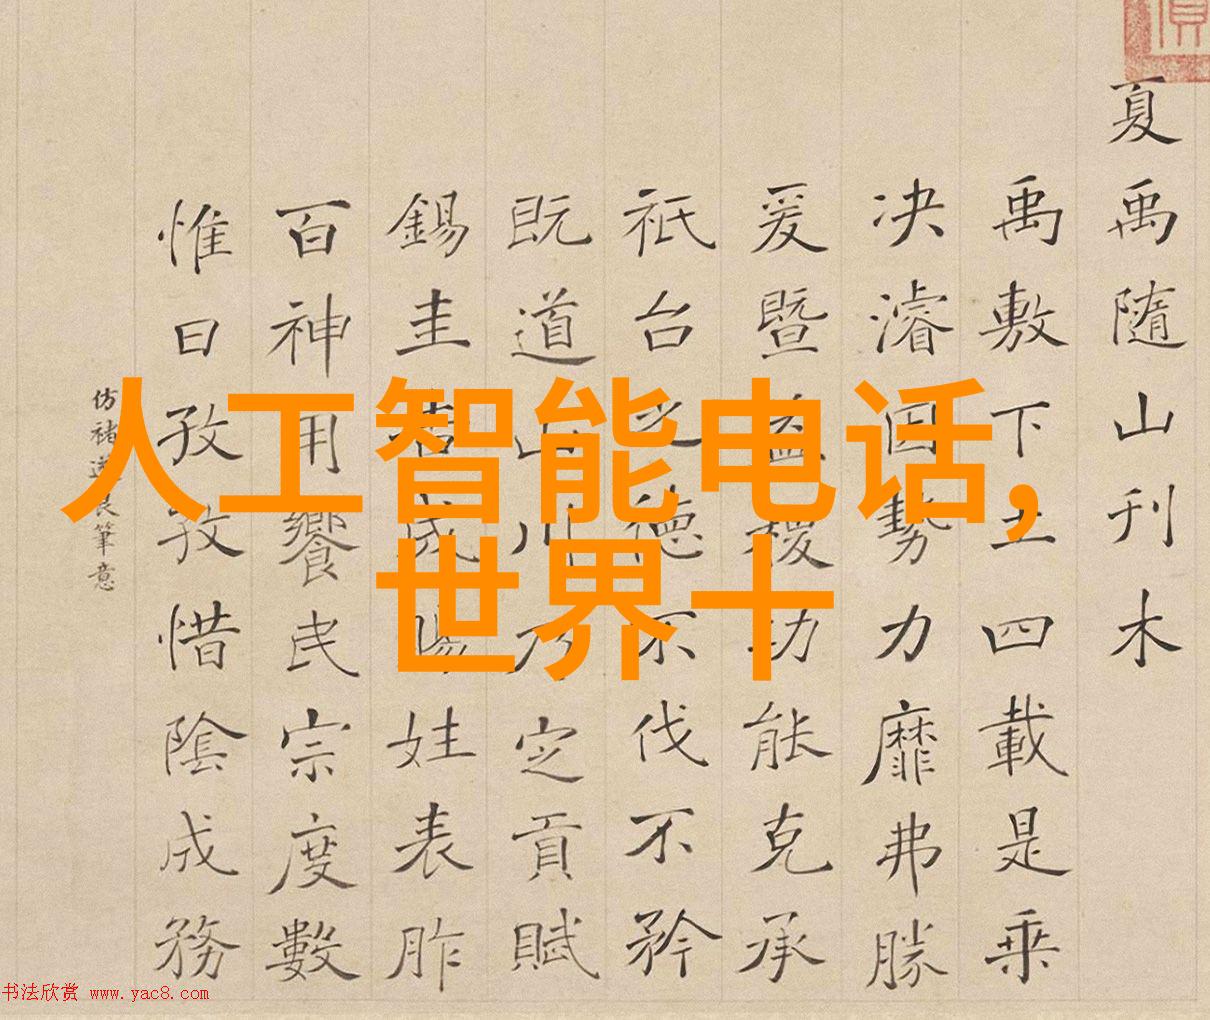 夏禹隨山刊木
禹敷下土四載是乘
决濬因勢力靡弗勝
爰暨益稷功能克承
祇台之德不伐不矜
既道山川乃定貢賦
錫圭告成賜姓表胙
百神用饗民宗度數
惟日孜孜惜陰成務
仿褚遂良筆意
人工智能电话,
世界十
书法欣赏 www.yac8.com